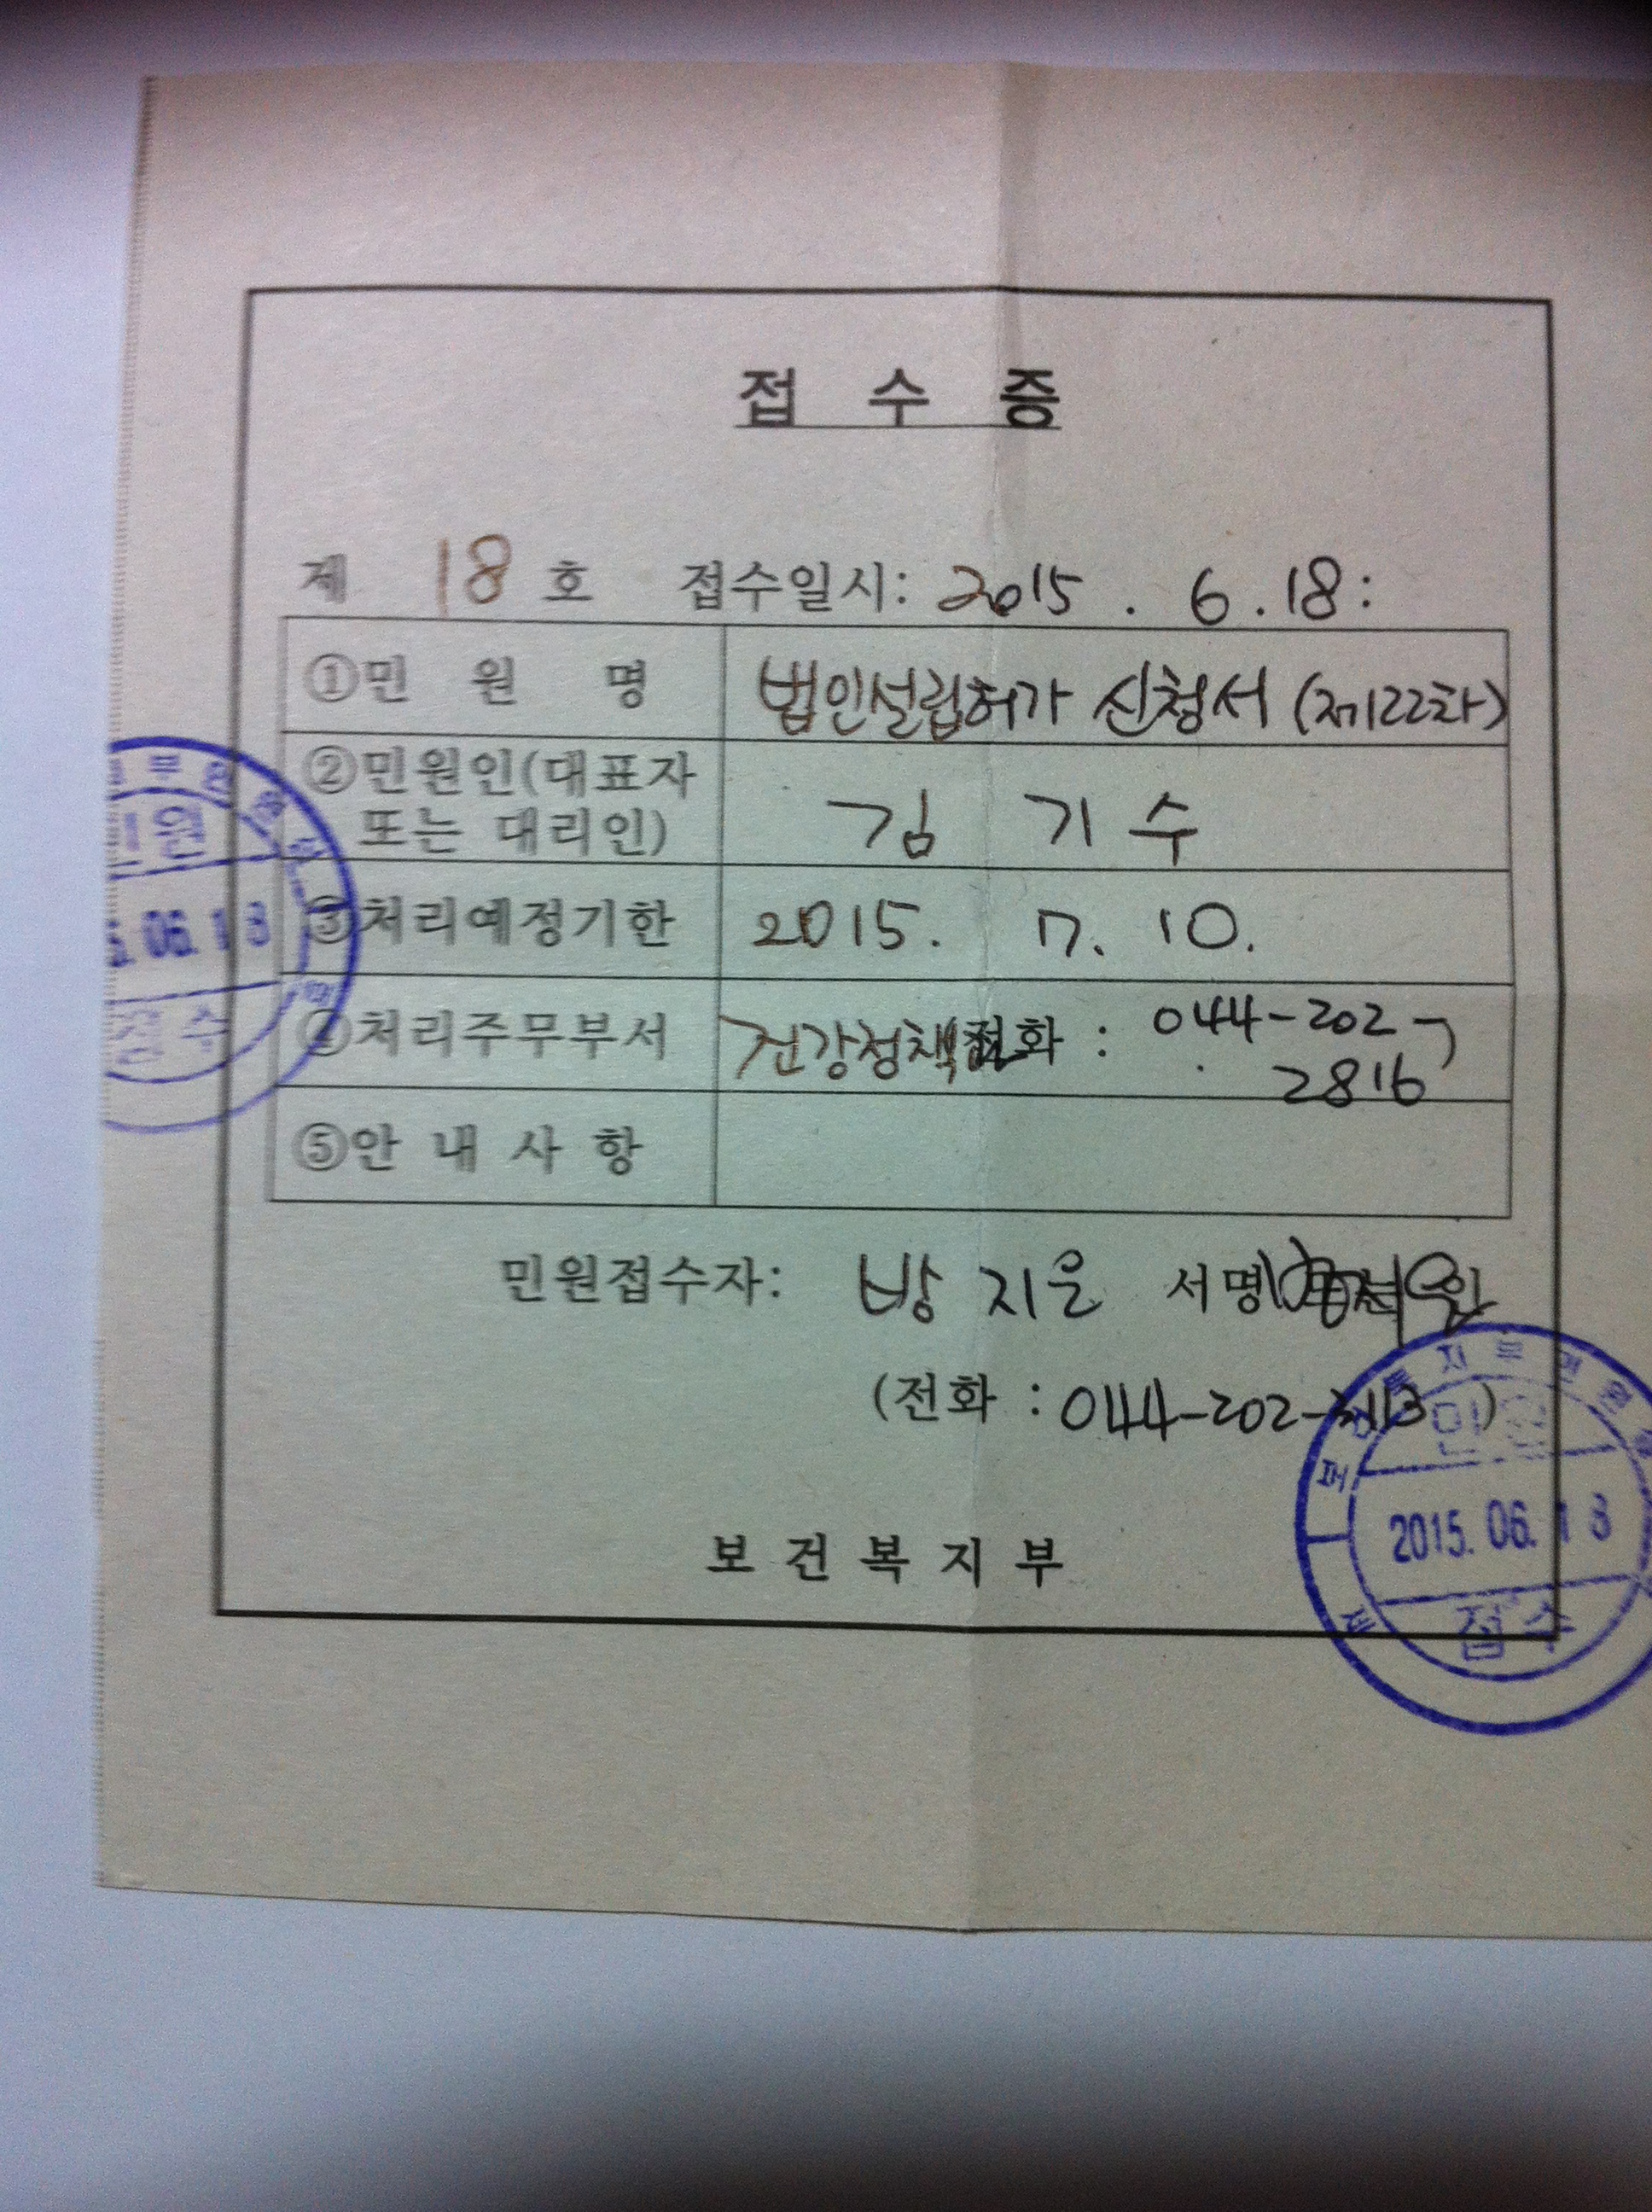 접 수 증
제 18 호 접수일시: 2015 . 6 . 18 :
①민 원 명 법인설립허가 신청서 (제122차)
②민원인(대표자 또는 대리인) 김 기 수
③처리예정기한 2015. 7. 10.
④처리주무부서 건강정책 전화 : 044-202-
2816
⑤안 내 사 항
민원접수자: 방 지 은 서명
(전화 : 044-202-2113 )
보 건 복 지 부
민원
06. 18
접수
민원
2015. 06. 18
접수